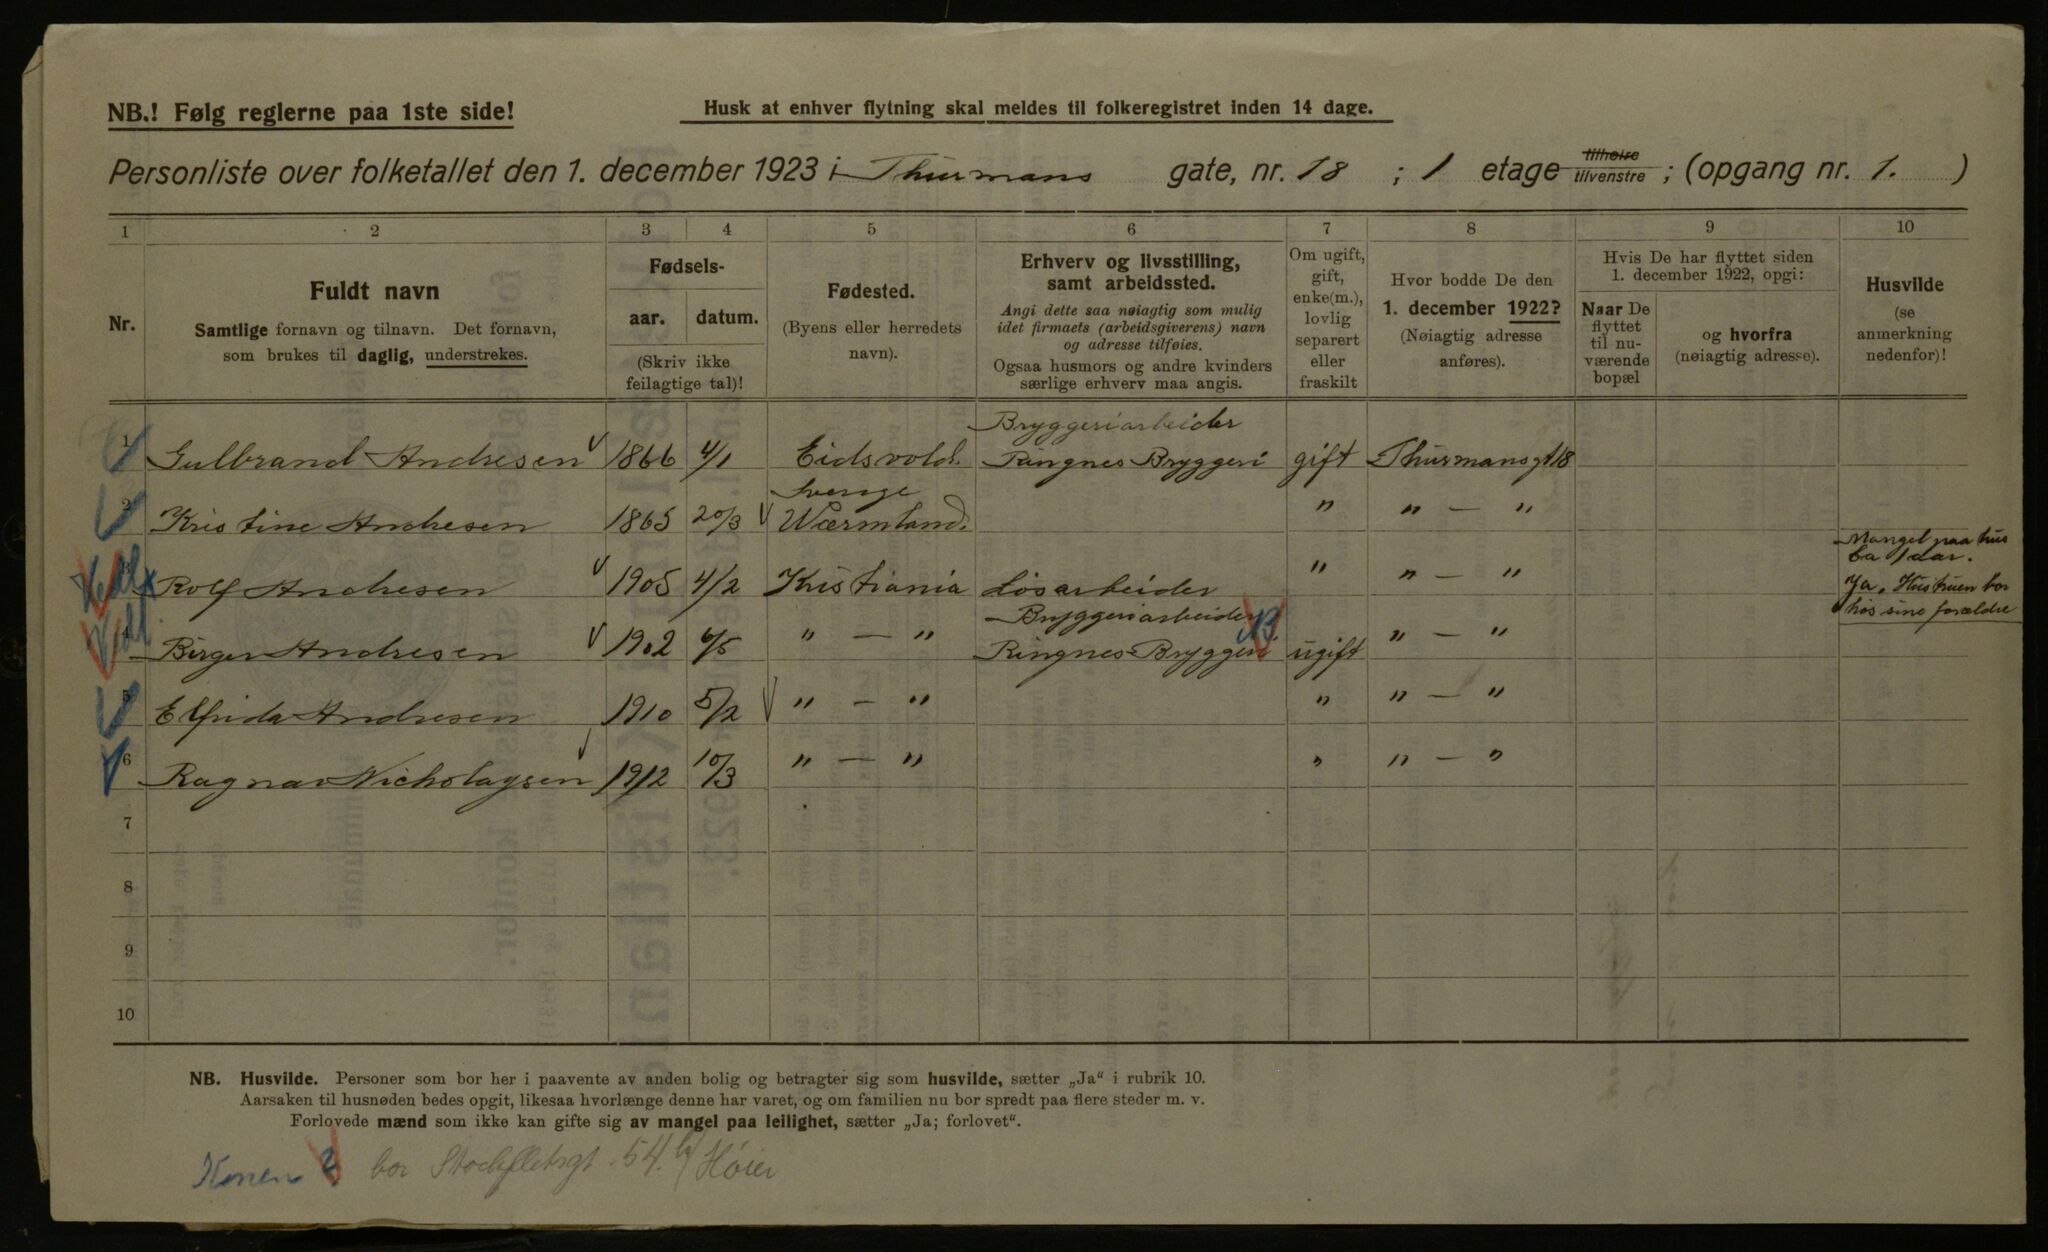 NB.! Følg reglerne paa 1ste side!
Husk at enhver flytning skal meldes til folkeregistret inden 14 dage.
Personliste over folketallet den 1. december 1923 i Thurmans gate, nr. 18 ; 1 etage tilhøire tilvenstre ; (opgang nr. 1. )
1 2 3 4 5 6 7 8 9 10
Nr.
Fuldt navn
Samtlige fornavn og tilnavn. Det fornavn,
som brukes til daglig, understrekes.
Fødsels-
aar. datum.
(Skriv ikke
feilagtige tal)!
Fødested.
(Byens eller herredets
navn).
Erhverv og livsstilling,
samt arbeidssted.
Angi dette saa nøiagtig som mulig
idet firmaets (arbeidsgiverens) navn
og adresse tilføies.
Ogsaa husmors og andre kvinders
særlige erhverv maa angis.
Om ugift,
gift,
enke(m.),
lovlig
separert
eller
fraskilt
Hvor bodde De den
1. december 1922?
(Nøiagtig adresse
anføres).
Hvis De har flyttet siden
1. december 1922, opgi:
Naar De
flyttet
til nu-
værende
bopæl
og hvorfra
(nøiagtig adresse).
Husvilde
(se
anmerkning
nedenfor)!
Bryggeriarbeider
1 Gulbrand Andresen 1866 4/1 Eidsvold. Ringnes Bryggeri gift Thurmansgt 18
Sverige
2 Kristine Andresen 1865 20/3 Wærmland. " " — "
Mangel paa hus
ca 1 aar.
3 Rolf Andresen 1905 4/2 Kristiania Løsarbeider " " — " Ja. Hustruen bor
hos sine forældre
Bryggeriarbeider
4 Birger Andresen 1902 6/5 " — " Ringnes Bryggeri ugift " — "
5 Elfrida Andresen 1910 5/2 " — " " " — "
6 Ragnar Nicholaysen 1912 10/3 " — " " " — "
7
8
9
10
NB. Husvilde. Personer som bor her i paavente av anden bolig og betragter sig som husvilde, sætter „Ja" i rubrik 10.
Aarsaken til husnøden bedes opgit, likesaa hvorlænge denne har varet, og om familien nu bor spredt paa flere steder m. v.
Forlovede mænd som ikke kan gifte sig av mangel paa leilighet, sætter „Ja; forlovet".
Konen bor Stockfletsgt. 54 b/ Høier